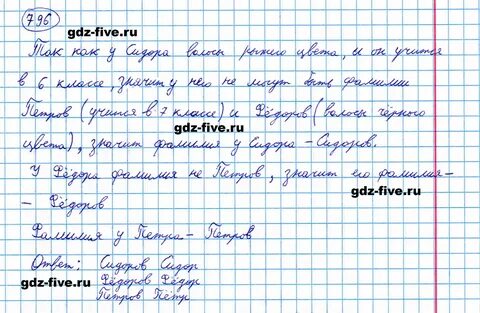 796
gdz-five.ru
Так как у Сидора волосы рыжего цвета, и он учится
в 6 классе, значит у него не могут быть фамилии
gdz-five.ru
Петров (учится в 7 классе) и Фёдоров (волосы чёрного
gdz-five.ru
цвета), значит фамилия у Сидора - Сидоров.
У Фёдора фамилия не Петров, значит его фамилия-
gdz-five.ru
- Фёдоров
gdz-five.ru
Фамилия у Петра - Петров
gdz-five.ru
Ответ: Сидоров Сидор
Фёдоров Фёдор
gdz-five.ru
Петров Пётр